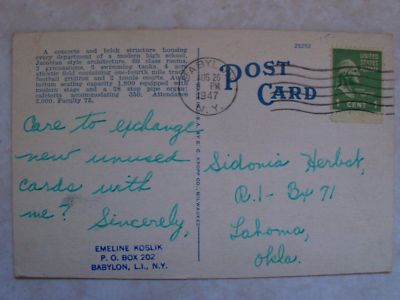 A concrete and brick structure housing
every department of a modern high school.
Jacobian style architecture. 60 class rooms,
3 gymnasiums, 2 swimming tanks, 4 acre
athletic field containing one-fourth mile track,
football gridiron and 2 tennis courts. Audi-
torium seating capacity 1,800 equipped with
modern stage and a 28 stop pipe organ;
cafeteria accommodating 350. Attendance
2,000. Faculty 75.
25252
BABYLON
AUG 26
PM
1947
N.Y.
POST
CARD
UNITED STATES
POSTAGE
1 CENT 1
Care to exchange
new unused
cards with
me? Sincerely,
EMELINE KOSLIK
P. O. BOX 202
BABYLON, L.I., N.Y.
E. C. KROPP CO., MILWAUKEE
Sidonia Herbst,
R.1- Bx 71
Lahoma,
Okla.